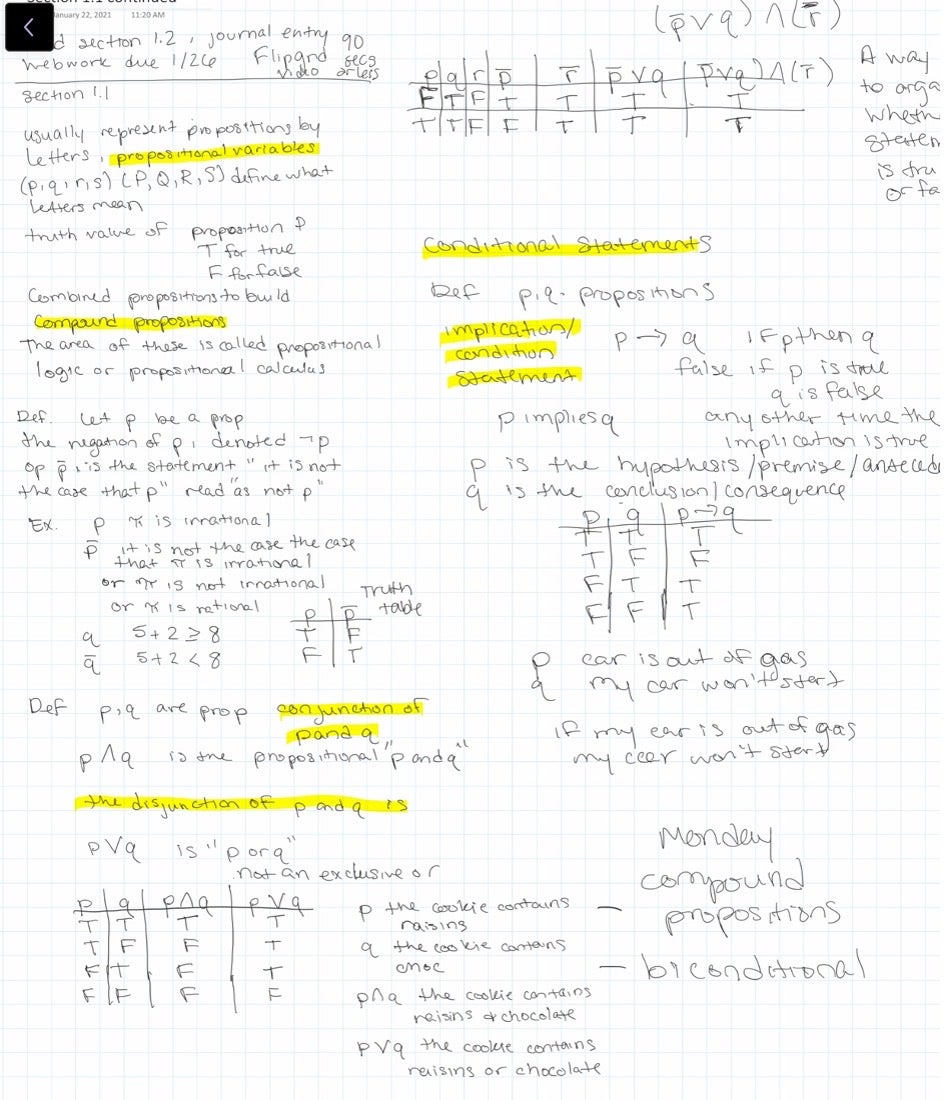 January 22, 2021 11:20 AM
section 1.2, journal entry 90
webwork due 1/26 Flipgrd secs
video or less
section 1.1
usually represent propositions by
letters, propositional variables
(p,q,r,s) (P,Q,R,S) define what
letters mean
truth value of proposition P
T for true
F for false
Combined propositions to build
Compound propositions
The area of these is called propositional
logic or propositional calculus
Def. Let p be a prop
the negation of p, denoted ¬p
op p̅, is the statement "it is not
the case that p" read "as not p"
Ex. p π is irrational
p̅ it is not the case the case
that π is irrational
or π is not irrational
or π is rational
q 5+2 ≥ 8
q̅ 5+2 < 8
Truth
table
p | p̅
T | F
F | T
Def p,q are prop conjunction of
p and q
p ∧ q is the propositional "p and q"
the disjunction of p and q is
p ∨ q is "p or q"
not an exclusive or
p | q | p ∧ q | p ∨ q
T | T | T | T
T | F | F | T
F | T | F | T
F | F | F | F
p the cookie contains
raisins
q the cookie contains
choc
p∧q the cookie contains
raisins + chocolate
p∨q the cookie contains
raisins or chocolate
(p̅ ∨ q) ∧ (r̅)
p | q | r | p̅ | r̅ | p̅ ∨ q | (p̅ ∨ q) ∧ (r̅)
F | T | F | T | T | T | T
T | T | F | F | T | T | T
A way
to orga
wheth
statem
is tru
or fa
Conditional Statements
Def p,q - propositions
implication/
condition
statement
p → q if p then q
false if p is true
q is false
p implies q any other time the
implication is true
p is the hypothesis/premise/anteced
q is the conclusion/consequence
p | q | p → q
T | T | T
T | F | F
F | T | T
F | F | T
p car is out of gas
q my car won't start
if my car is out of gas
my car won't start
Monday
compound
- propositions
- biconditional